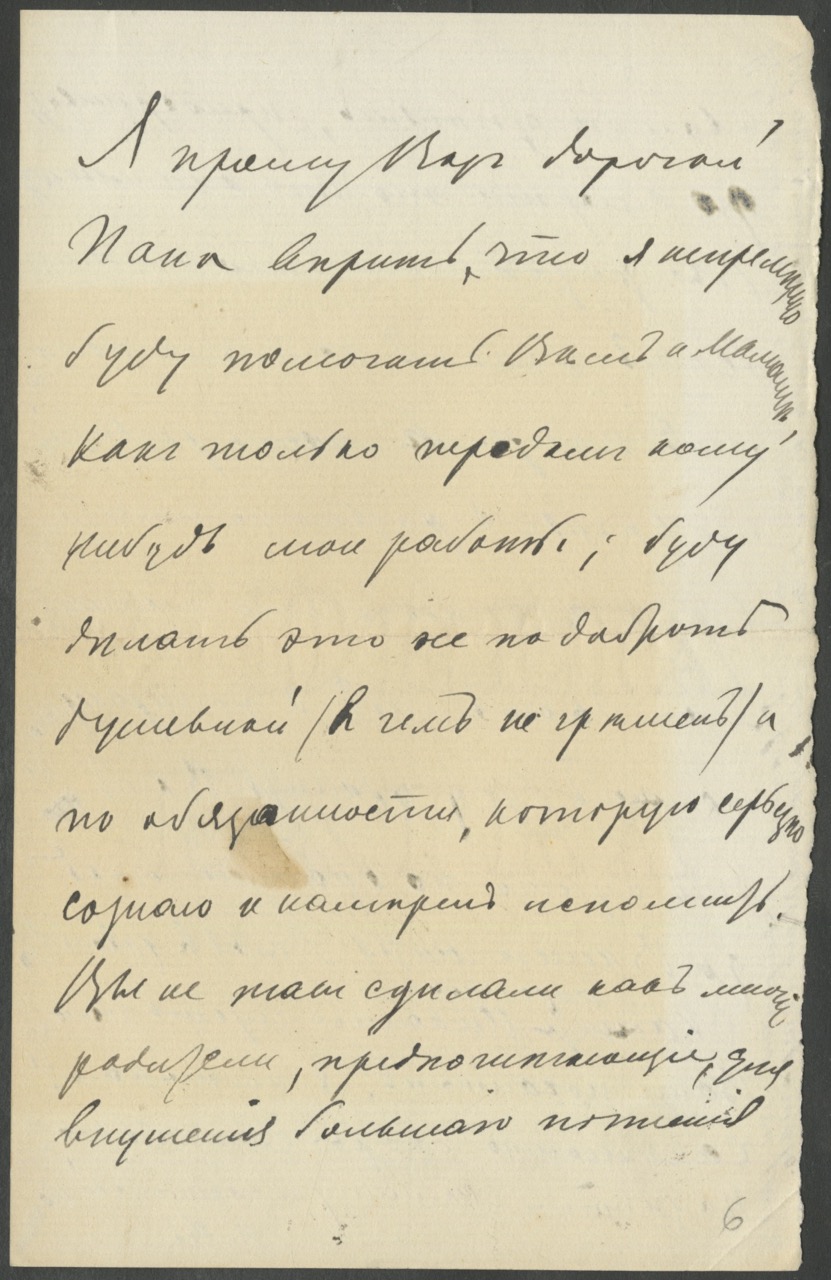 Я прошу Васъ дорогой
Папа вѣрить, что я непремѣнно
буду помогать Вамъ и Мамашѣ,
какъ только передамъ кому
нибудь мои работы; буду
дѣлать это не по добротѣ
душевной (въ чемъ не грѣшенъ) а
по обязанности, которую сердечно
сознаю и намѣренъ исполнить.
Вы не такъ сдѣлали какъ многіе
родители, предпочитающіе, для
внушенія большаго почтенія
6